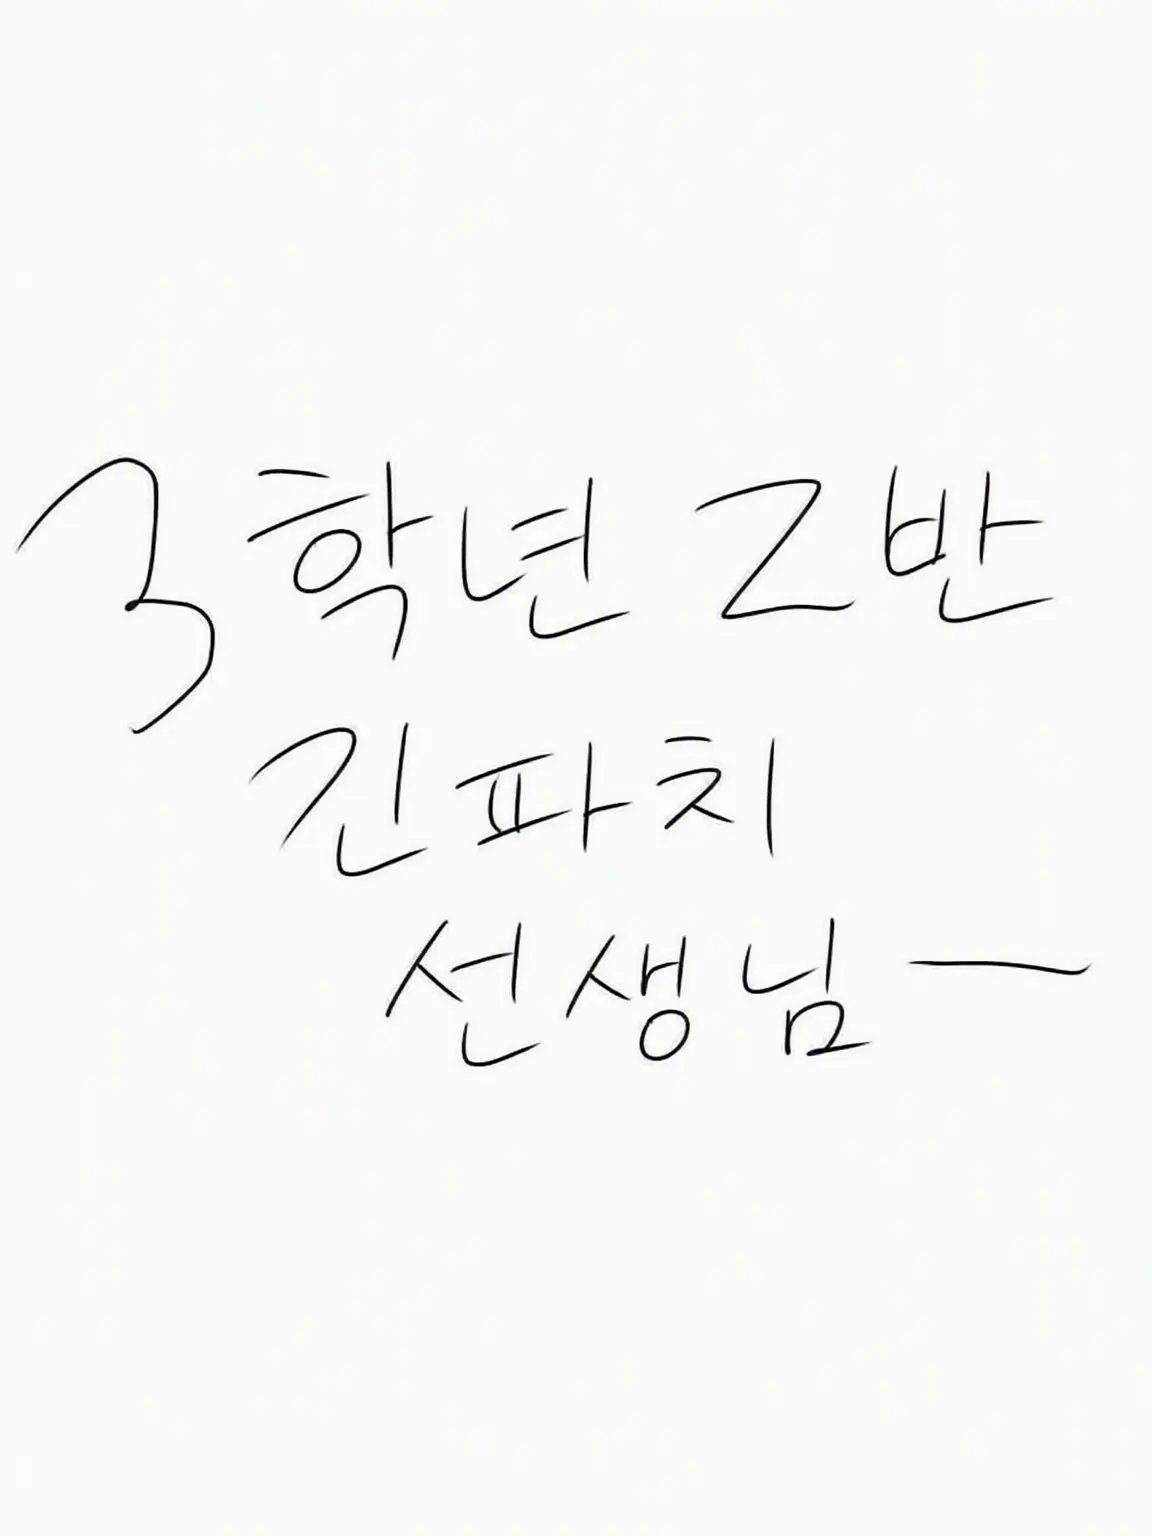 3학년 2반
긴파치
선생님~